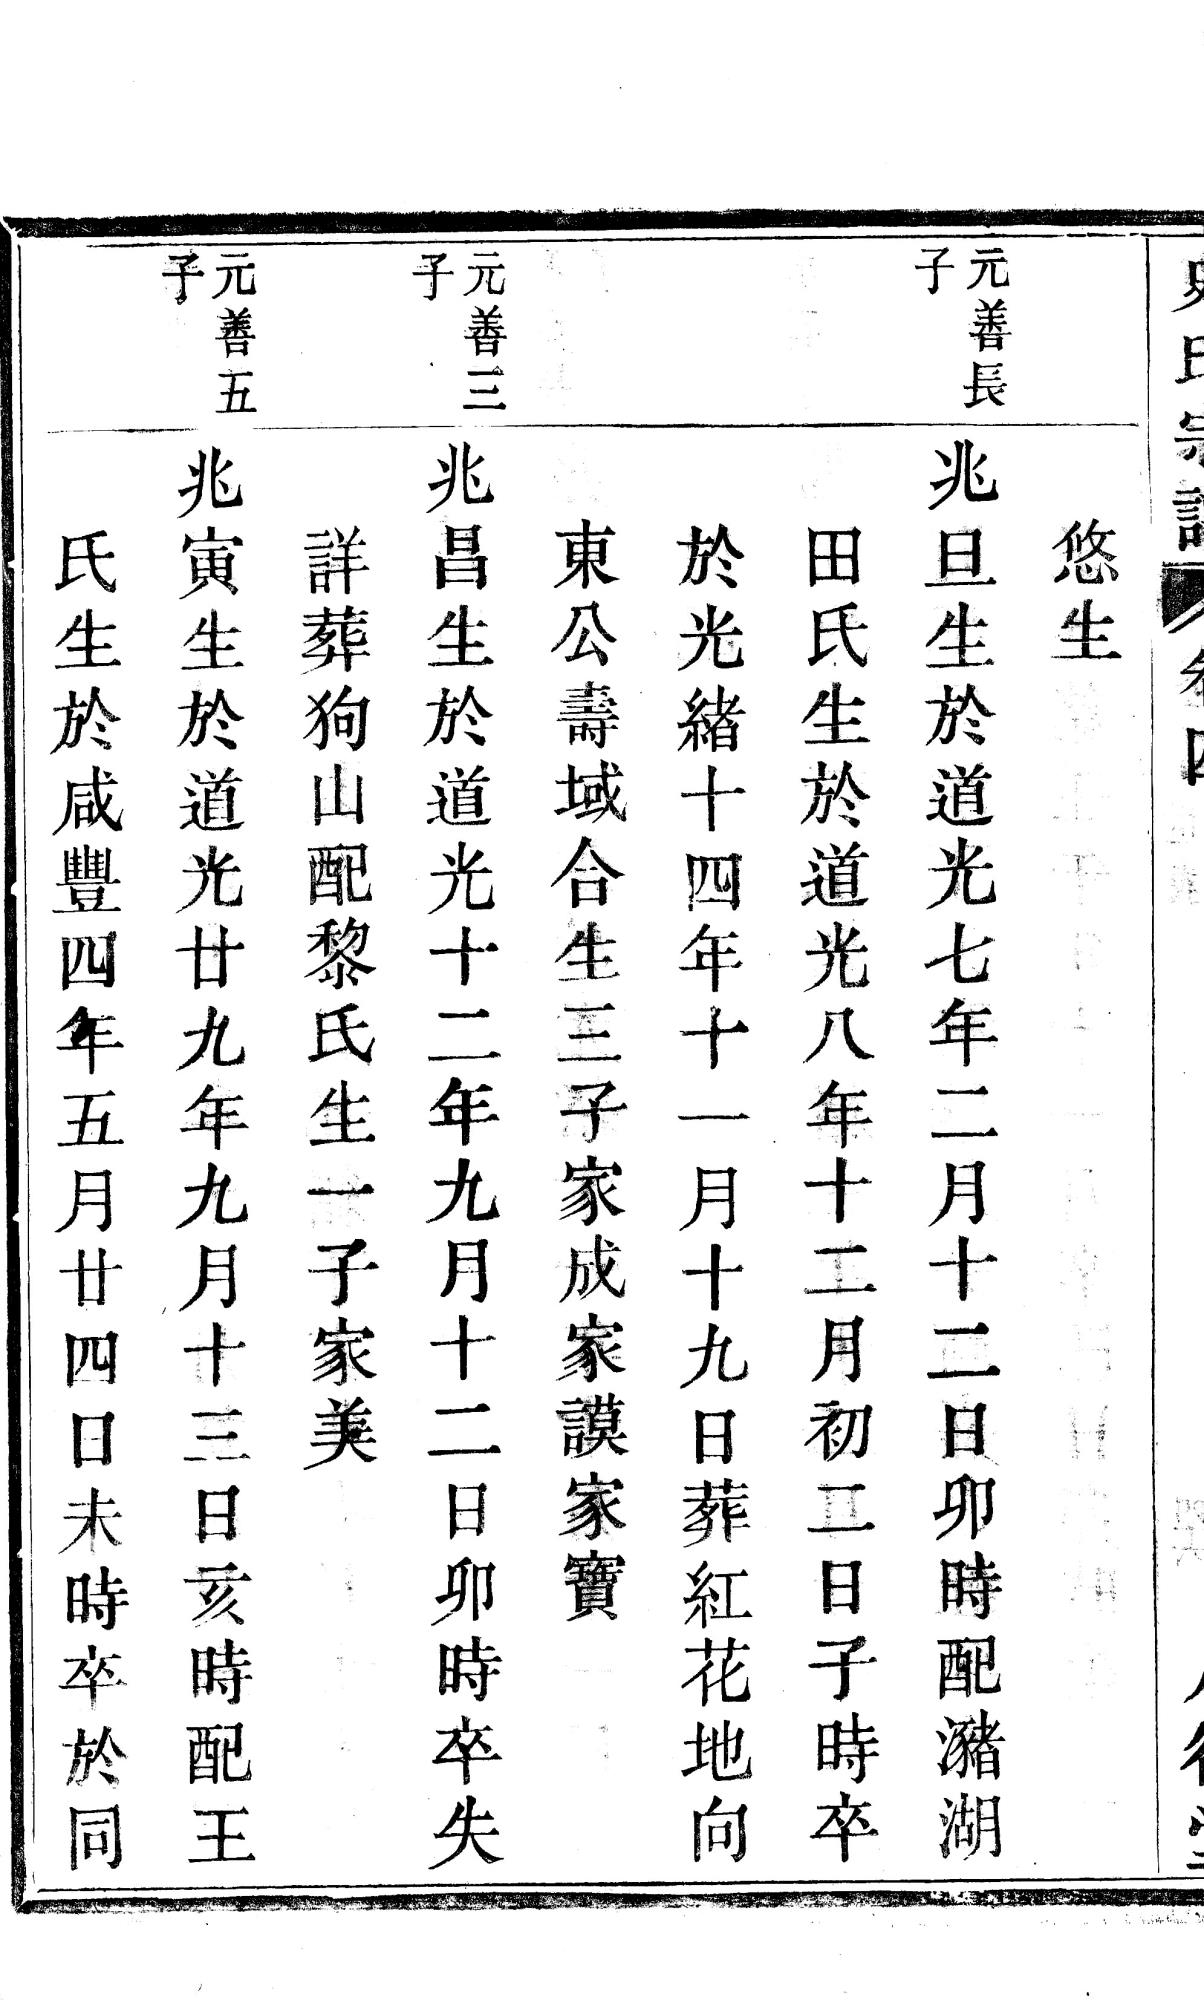 氏宗譜 卷四
悠生
元善長子
兆旦生於道光七年二月十二日卯時配瀦湖
田氏生於道光八年十二月初二日子時卒
於光緒十四年十一月十九日葬紅花地向
東公壽域合生三子家成家謨家寶
元善三子
兆昌生於道光十二年九月十二日卯時卒失
詳葬狗山配黎氏生一子家美
元善五子
兆寅生於道光廿九年九月十三日亥時配王
氏生於咸豐四年五月廿四日未時卒於同